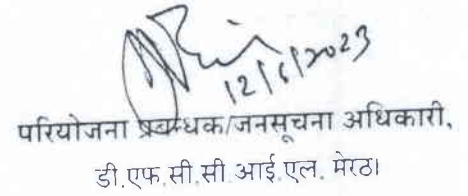 12/6/2023
परियोजना प्रबन्धक/जनसूचना अधिकारी,
डी.एफ.सी.सी.आई.एल. मेरठ।